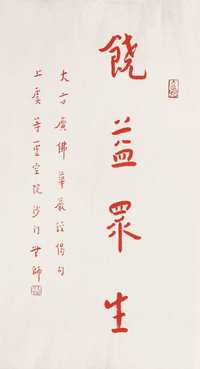 饒益眾生
大方廣佛華嚴經偈句
上虞等空院沙門師